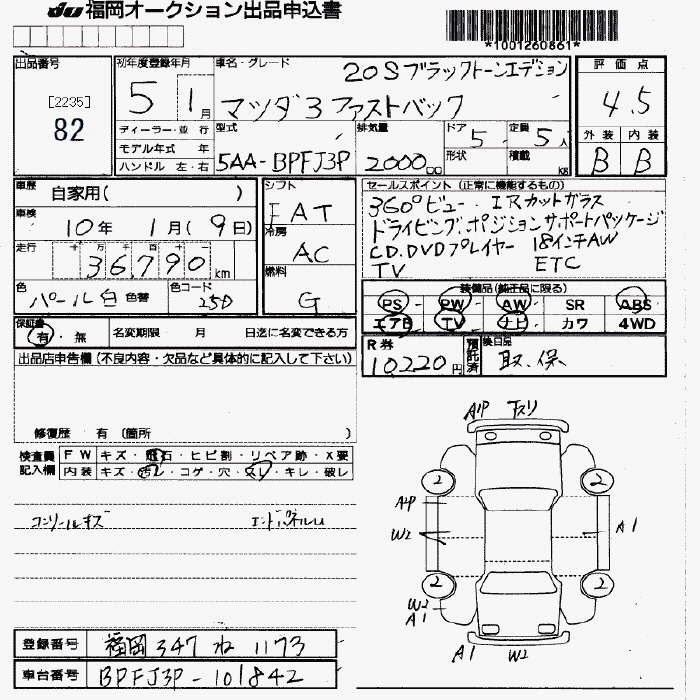 JU 福岡オークション出品申込書
*1001260861*
出品番号
[2235]
82
初年度登録年月
5 1月
ディーラー・並 行
モデル年式 年
ハンドル 左・右
車名・グレード
20Sブラックトーンエディション
マツダ3 ファストバック
型式
5AA-BPFJ3P
排気量
2000cc
ドア
5
形状
定員
5人
積載
KG
評価点
4.5
外装 内装
B B
車歴
自家用( )
車検
10年 1月(9日)
走行
十 万 千 百 十 一
36,790 km
色
パール白 色替
色コード
25D
シフト
FAT
冷房
AC
燃料
G
セールスポイント (正常に機能するもの)
360°ビュー. IRカットガラス
ドライビング.ポジションサポートパッケージ
CD.DVDプレイヤー 18インチAW
TV ETC
装備品(純正品に限る)
PS・ PW・ AW・ SR ABS
エアB TV・ ナビ・ カワ 4WD
保証書
有・無 名変期限 月 日迄に名変できる方
R券
10220円
預託済
後日品
取.保
出品店申告欄(不良内容・欠品など具体的に記入して下さい)
修復歴 有 (箇所 )
検査員記入欄
FW キズ・飛石・ヒビ割・リペア跡・X要
内装 キズ・汚レ・コゲ・穴・スレ・キレ・破レ
コンソールキズ エンドパネルU
A1P 下スリ
2 2
A2P
W2 A1
2 2
W2
A1
A1 W2
登録番号 福岡 347 ね 1173
車台番号 BPFJ3P-101842